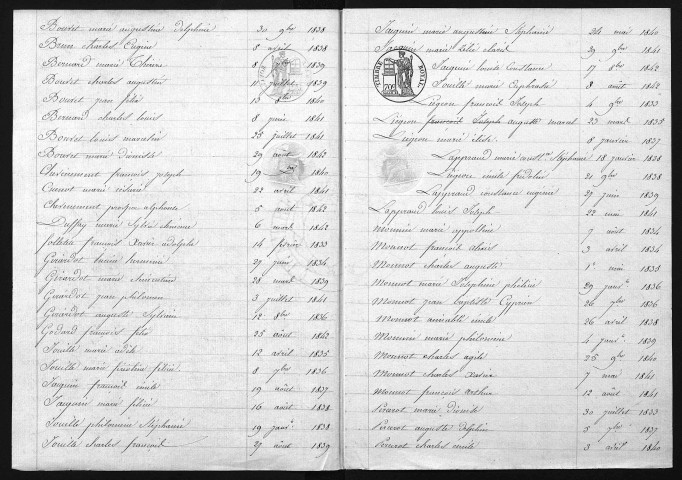 Bouvet marie augustine delphine 30 9bre 1838
Brun charles Eugène 8 avril 1838
Bernard marie Thérèse 8 1839
Bouvet charles augustin 11 juillet 1839
Bouvet jean félix 13 8bre 1840
Bernard charles louis 8 juin 1841
Bouvet louis marcelin 25 juillet 1841
Bouvet marie 29 août 1842
Chevènement françois joseph 19 1840
Cuenot marie 22 avril 1841
Chevènement prosper alphonse 5 août 1842
marie 6 mars 1842
françois Xavier adolphe 14 février 1833
Girardot 27 juin 1834
Girardot marie clementine 28 mars 1839
Girardot jean philomin 3 juillet 1841
Girardot auguste Sylvain 12 8bre 1836
Godard françois félix 25 août 1842
Jouille marie adèle 12 avril 1835
Jouille marie félicie 8 7bre 1836
Jacquin françois emile 19 août 1837
Jacquin marie félicie 16 août 1838
Jouille philomène Stéphanie 19 janvr 1838
Jouille charles françois 29 août 1839
Jacquin marie augustine Stéphanie 24 mai 1840
Jacquin marie 29 9bre 1841
Jacquin Constance 17 8bre 1842
Jouille marie Euphrasie 8 août 1842
TIMBRE ROYAL
Liégeon françois Joseph 4 9bre 1833
Liégeon Joseph auguste marcel 23 mars 1835
Liégeon marie élise 8 janvier 1837
Lapprand marie Stéphanie 18 janvier 1838
Liégeon emile fridolin 21 9bre 1838
Lapprand constance eugénie 27 juin 1839
Lapprand louis Joseph 22 mai 1841
Monnin marie appolline 7 août 1834
Monnot françois aloïs 3 avril 1834
Monnot charles auguste 1er mai 1835
Monnot marie Joséphine 29 janvr 1836
Monnot jean baptiste Cyprien 26 7bre 1836
Monnot aimable emile 26 avril 1838
Monnin marie philomène 4 janvr 1839
Monnot charles 25 9bre 1840
Monnot charles xavier 7 mai 1841
Monnot françois arthur 12 août 1841
Perrot marie 30 juillet 1833
Perrot auguste delphin 5 7bre 1837
Perrot charles emile 3 avril 1840